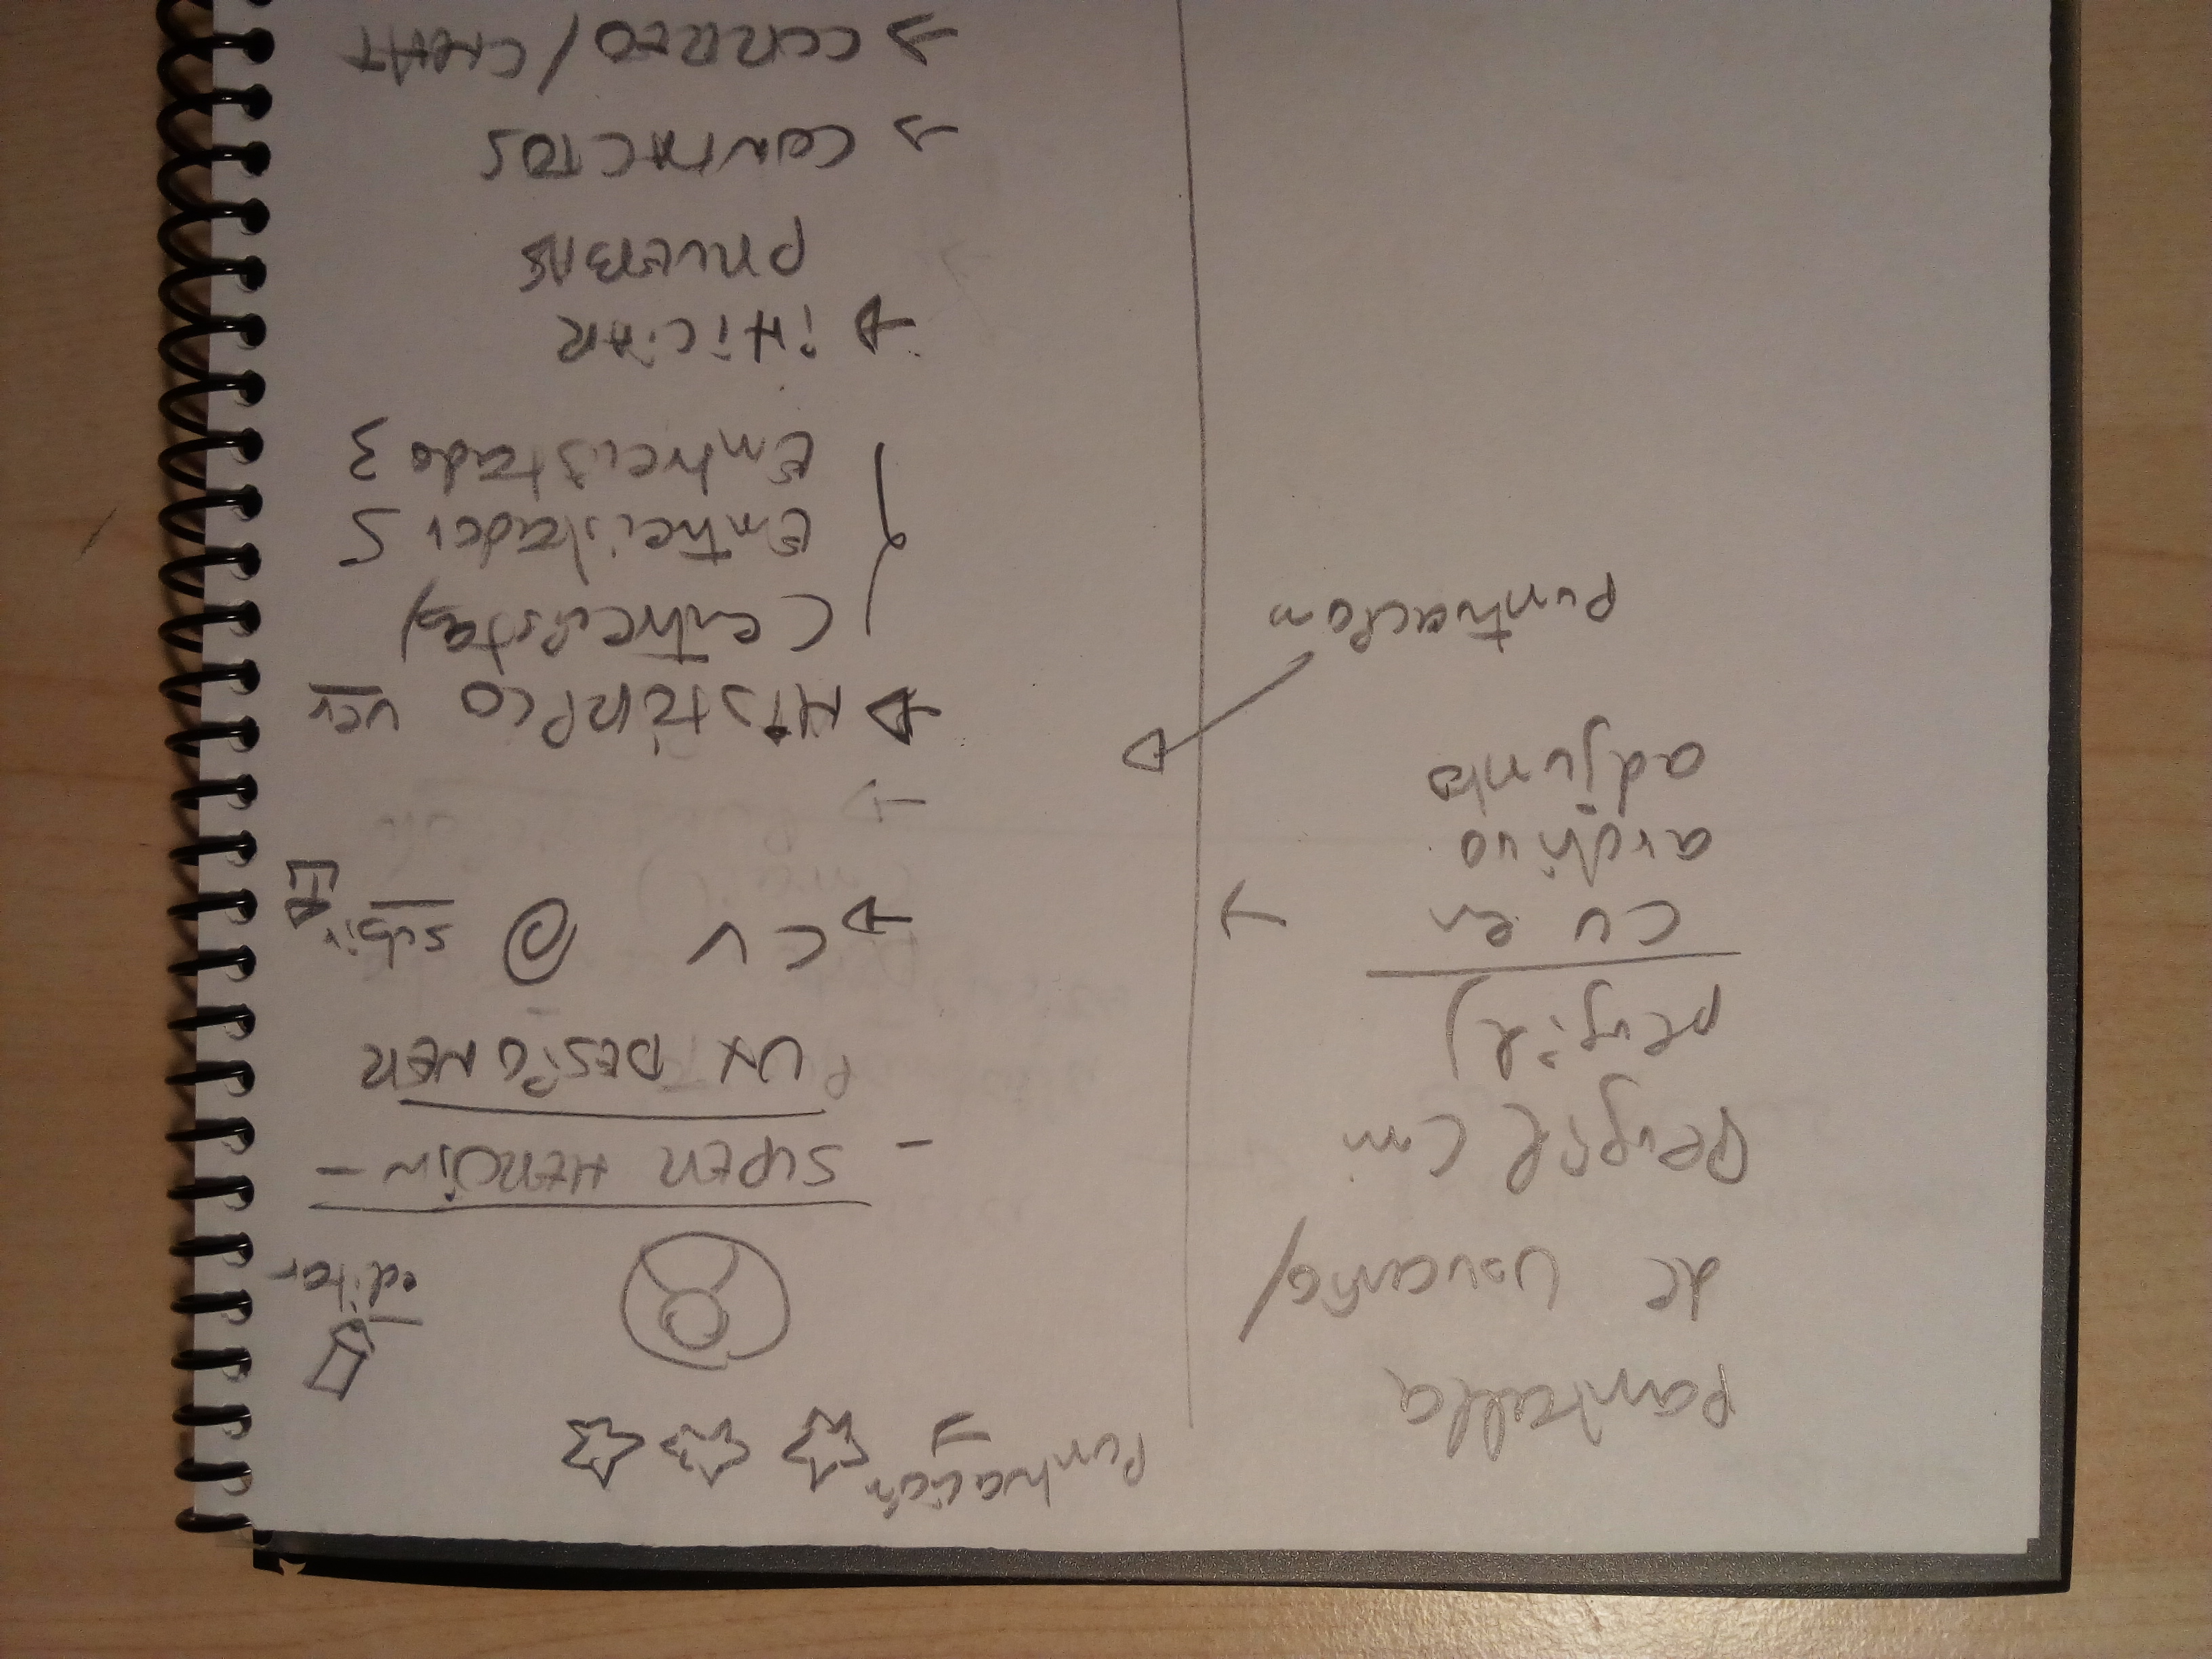 pantalla
de usuario/
Perfil (mi
perfil)
CV en
archivo
adjunto
puntuación
Puntuación
editar
- SUPER HEROIN -
UX DESIGNER
CV subir
HISTÓRICO ver
(entrevistas)
Entrevistador 5
Entrevistado 3
INICIAR
PRUEBAS
CONTACTOS
CORREO / CHAT